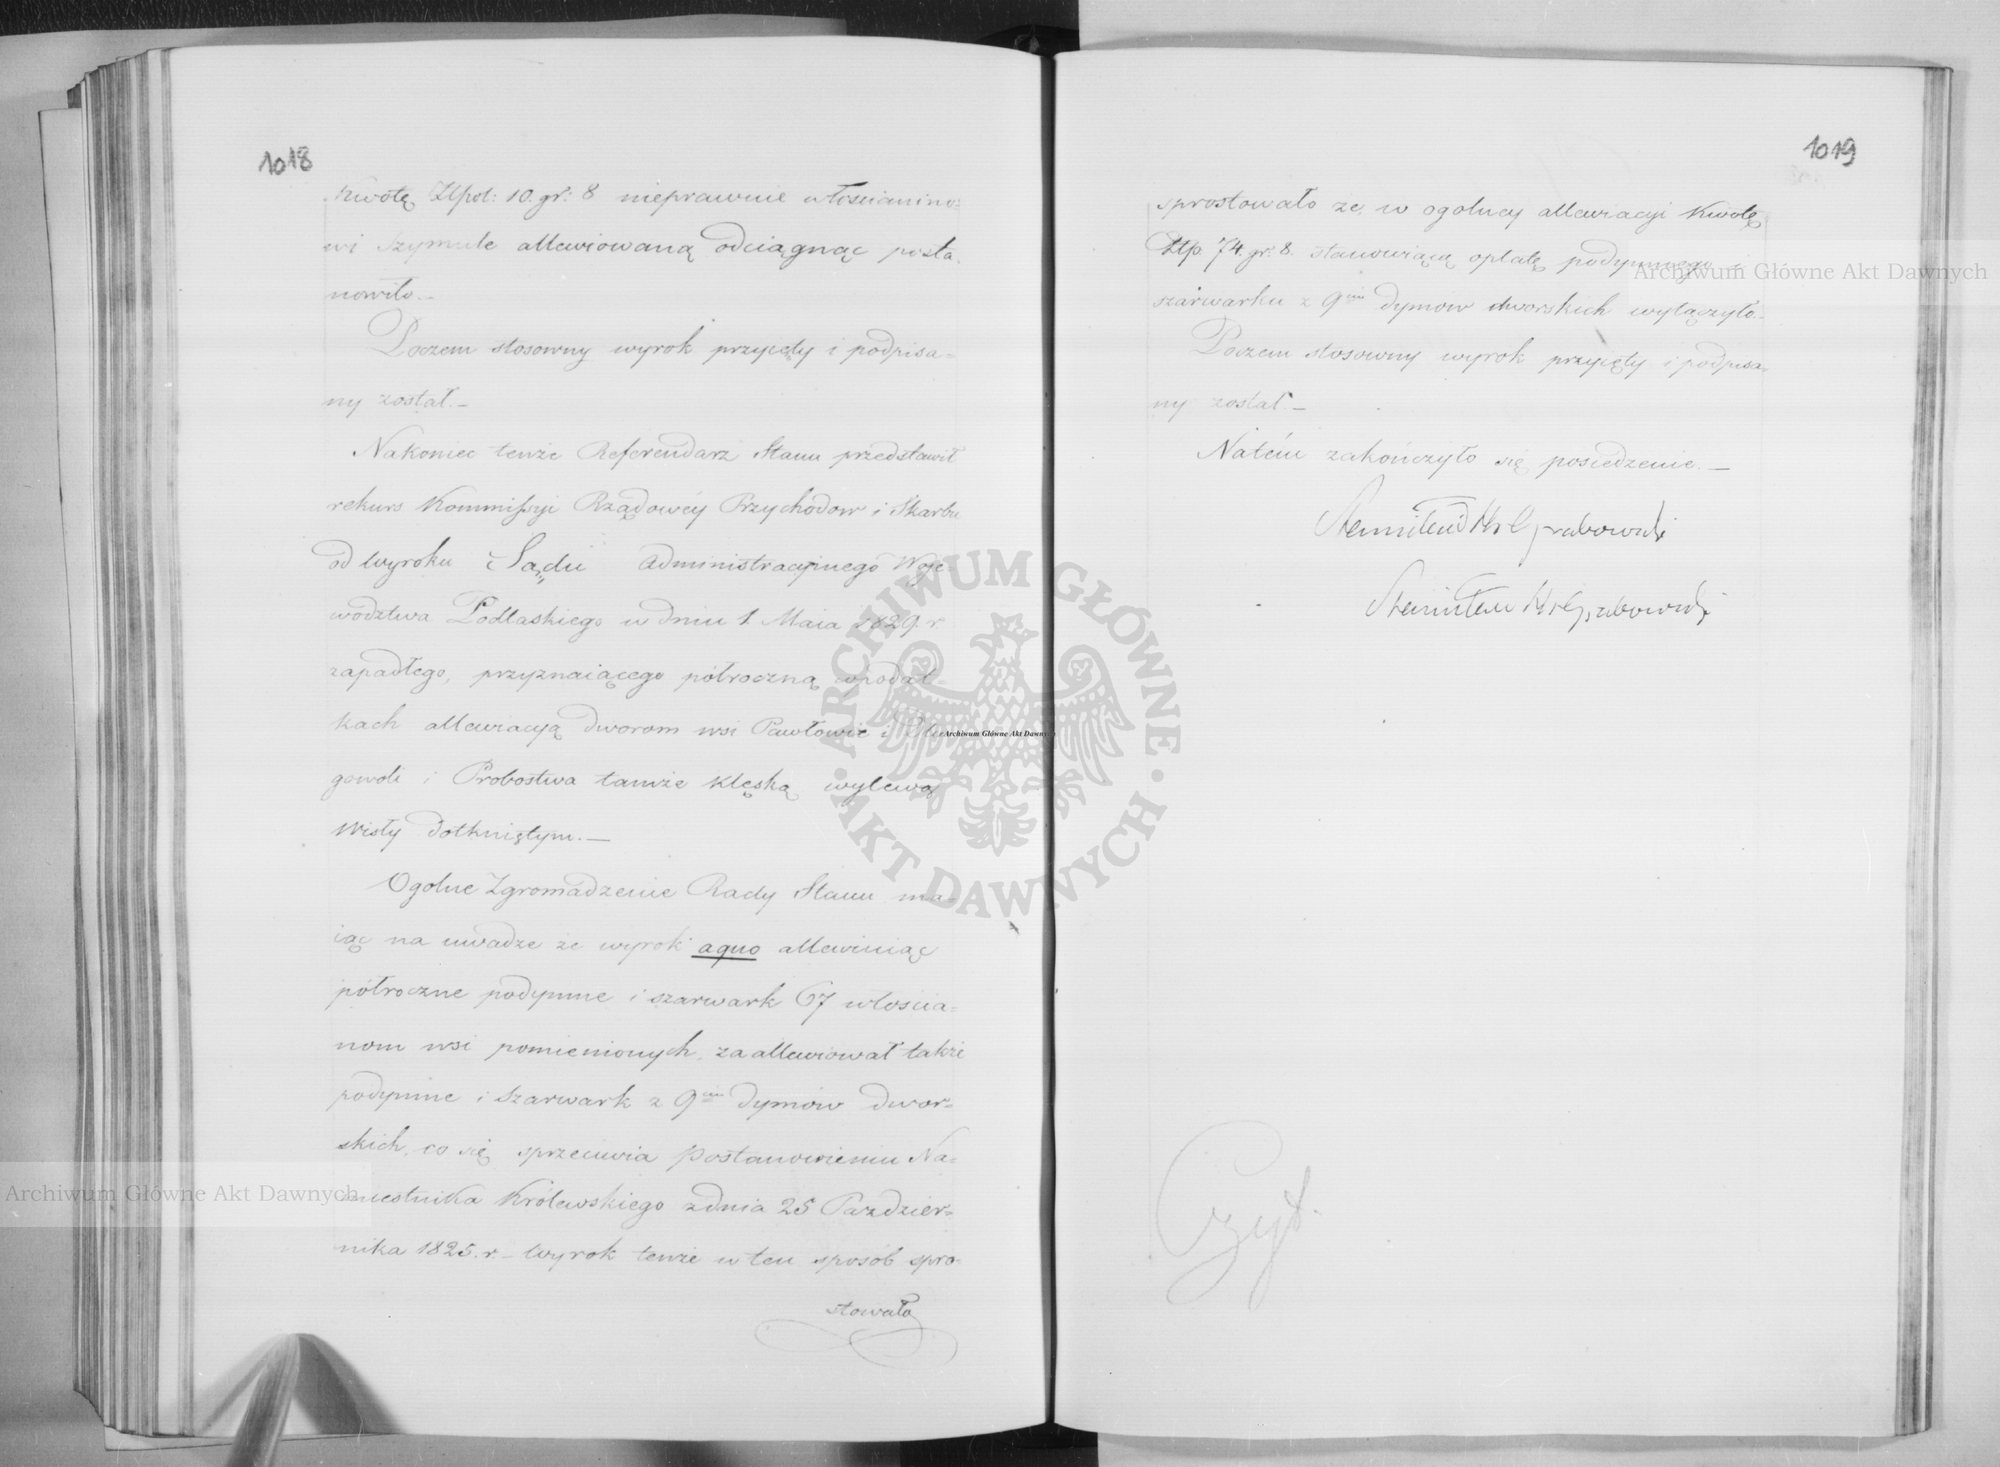 1018
Kwotę Złpol: 10. gr: 8 nieprawnie włościanino=
wi Szymule allewiowaną odciągnąc posta=
nowiło.—
Poczem stosowny wyrok przyięty i podpisa=
ny został.—
Nakoniec tenże Referendarz Stanu przedstawił
rekurs Kommissyi Rządowéy Przychodow i Skarbu
od wyroku Sądu Administracyinego Woje=
wodztwa Podlaskiego w dniu 1 Maia 1829. r
zapadłego, przyznaiącego półroczną w podat=
kach allewiacyą dworom wsi Pawłowic i
gowoli i Probostwa tamże klęską wylewu
Wisły dotkniętym.—
Ogolne Zgromadzenie Rady Stanu ma=
iąc na uwadze że wyrok aquo allewiuiąc
półroczne podymne i szarwark 67 włościa=
nom wsi pomienionych, zaallewiował także
podymne i Szarwark z 9ciu dymów dwor=
skich, co się sprzeciwia Postanowieniu Na=
miestnika Królewskiego z dnia 25 Paździer=
nika 1825. r.— Wyrok tenże w ten sposób spro=
stowało
1019
sprostowało że w ogolney allewiacyi Kwotę
Złp. 74. gr: 8. stanowiącą opłatę podymnego i
szarwarku z 9ciu dymów dworskich wyłączyło.—
Poczem stosowny wyrok przyięty i podpisa=
ny został.—
Natém zakończyło się posiedzenie.—
Stanisław Hr Grabowski
Stanisław Hr Grabowski
Czyt.
Archiwum Główne Akt Dawnych
Archiwum Główne Akt Dawnych
Archiwum Główne Akt Dawnych
ARCHIWUM GŁÓWNE · AKT DAWNYCH ·